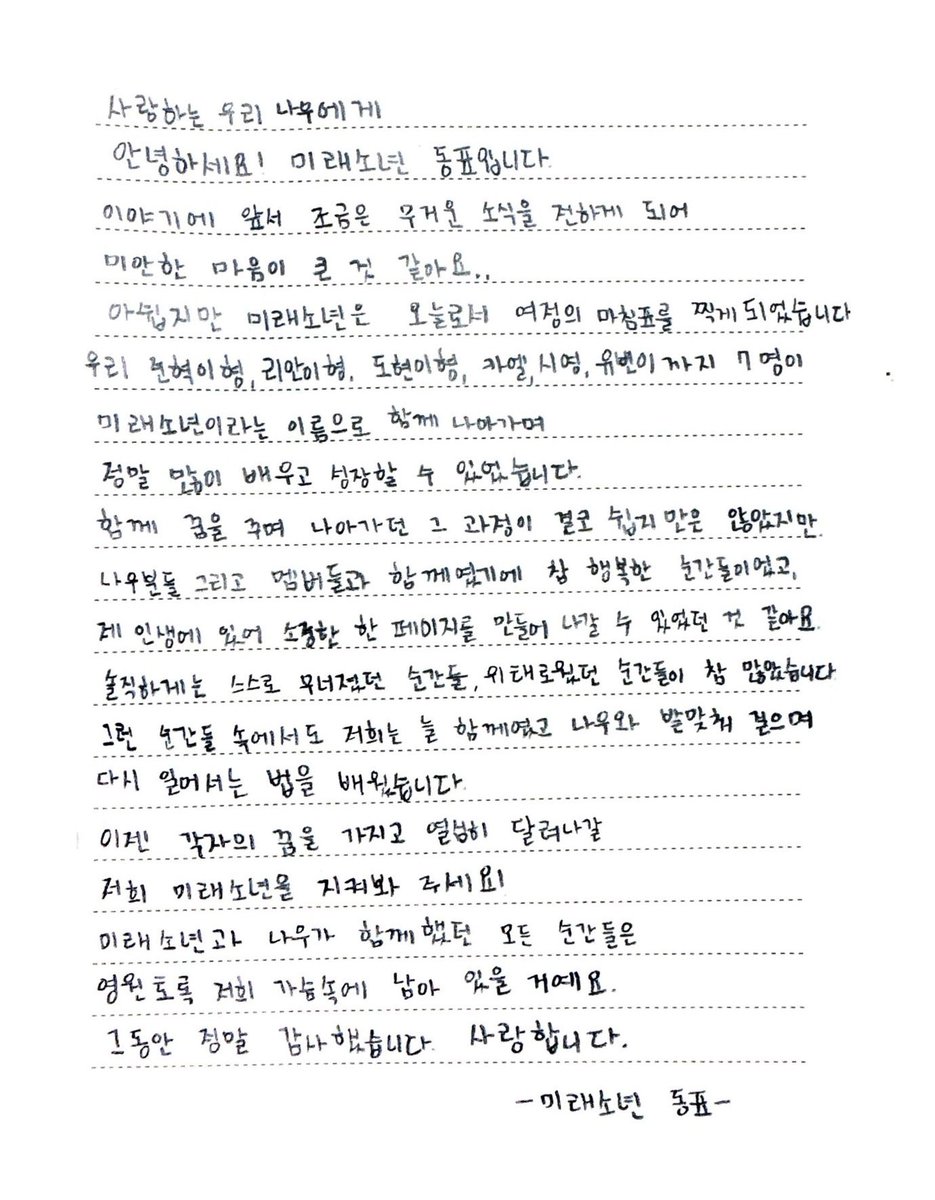 사랑하는 우리 나우에게
안녕하세요! 미래소년 동표입니다.
이야기에 앞서 조금은 무거운 소식을 전하게 되어
미안한 마음이 큰 것 같아요..
아쉽지만 미래소년은 오늘로서 여정의 마침표를 찍게 되었습니다
우리 준혁이형, 리안이형, 도현이형, 카엘, 시영, 유빈이까지 7명이
미래소년이라는 이름으로 함께 나아가며
정말 많이 배우고 성장할 수 있었습니다.
함께 꿈을 꾸며 나아가던 그 과정이 결코 쉽지만은 않았지만
나우분들 그리고 멤버들과 함께였기에 참 행복한 순간들이었고,
제 인생에 있어 소중한 한 페이지를 만들어 나갈 수 있었던 것 같아요.
솔직하게는 스스로 무너졌던 순간들, 위태로웠던 순간들이 참 많았습니다
그런 순간들 속에서도 저희는 늘 함께였고 나우와 발맞춰 걸으며
다시 일어서는 법을 배웠습니다.
이젠 각자의 꿈을 가지고 열심히 달려나갈
저희 미래소년을 지켜봐 주세요!
미래소년과 나우가 함께했던 모든 순간들은
영원토록 저희 가슴속에 남아 있을 거예요.
그동안 정말 감사했습니다. 사랑합니다.
-미래소년 동표-